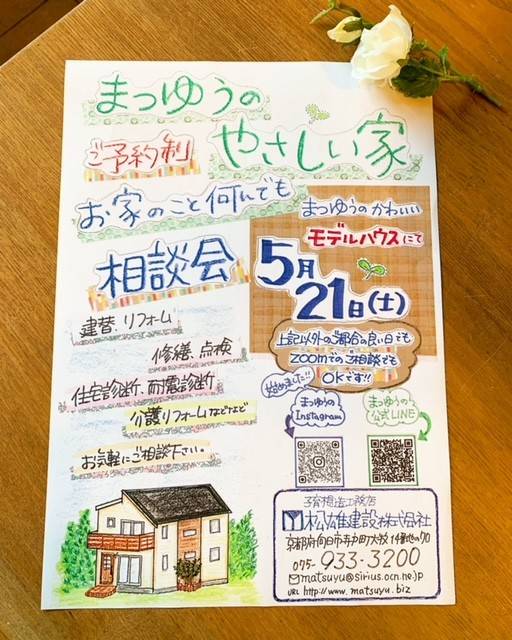 まつゆうの
やさしい家
ご予約制
お家のこと何んでも
相談会
まつゆうのかわいい
モデルハウスにて
5月
21日(土)
建替、リフォーム
修繕、点検
住宅診断、耐震診断
介護リフォームなどなど
お気軽にご相談下さい。
上記以外のご都合の良い日でも
zoomでのご相談でも
OKです!!
始めました!!
まつゆうの
Instagram
まつゆうの
公式LINE
松雄建設株式会社
京都府向日市寺戸町大牧
075-933-3200
matsuyu@sirius.ocn.ne.jp
URL http://www.matsuyu.biz